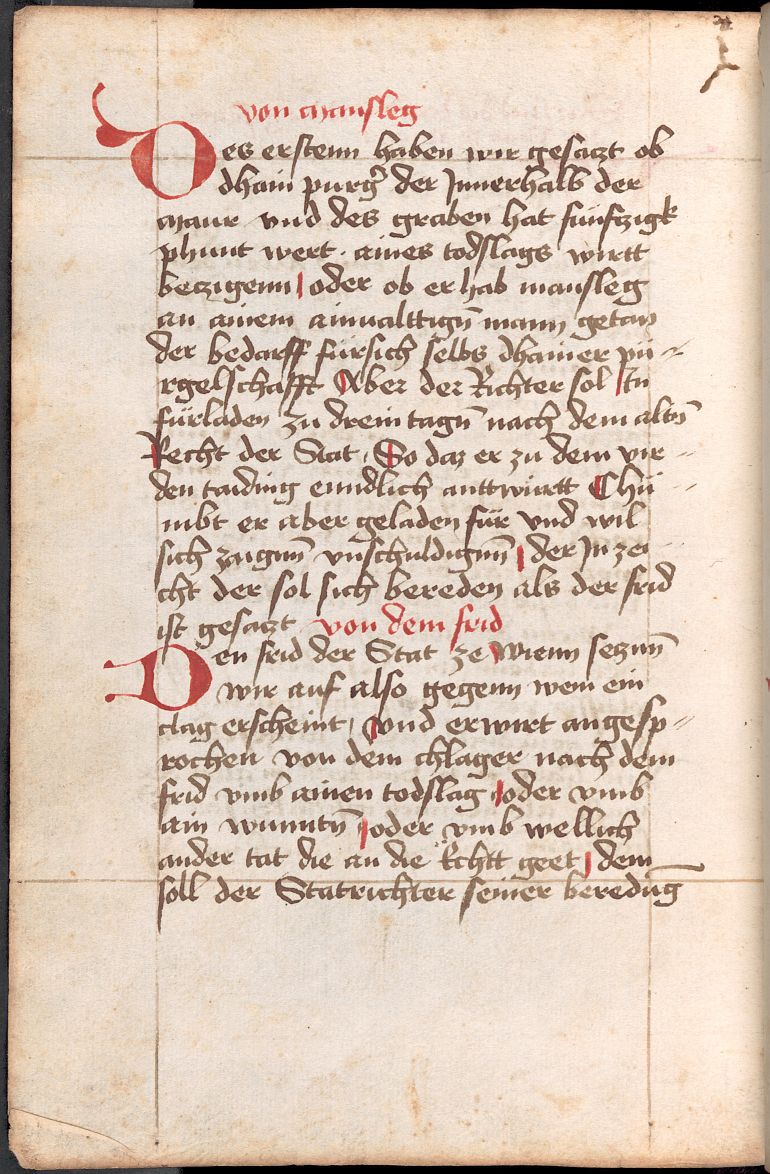 von Mansleg
Des erstenn haben wir gesaczt ob
dhain purgʾ der Innerhalb der
Maur vnd des graben hat funfczigk
phunt wert . aines todslags wirtt
beczigenn oder ob er hab mansleg
an ainem ainualttign̄ mann getan
der bedarff fürsich selbs dhainer pu˗
rgelschafft Aber der Richter sol In
fürladen zu drein tagn̄ nach dem altn̄
Recht der Stat . So daz er zu dem vir˗
den taiding enndlich anttwürtt Chu˗
mbt er aber geladen für vnd wil
sich zaignn̄ vnschuldignn̄ der Inzei˗
cht der sol sich bereden als der frid
ist gesaczt von dem frid
Den frid der Stat ze Wienn secznn̄
wir auf also gegenn wem ein
clag erscheint vnd er wirt angesp˗
rochen von dem chlager nach dem
frid vmb ainen todslag oder vmb
ain wunntn̄ oder vmb wellich
ander tat die an die Echtt geet dem
soll der Statrichter seiner beredūg